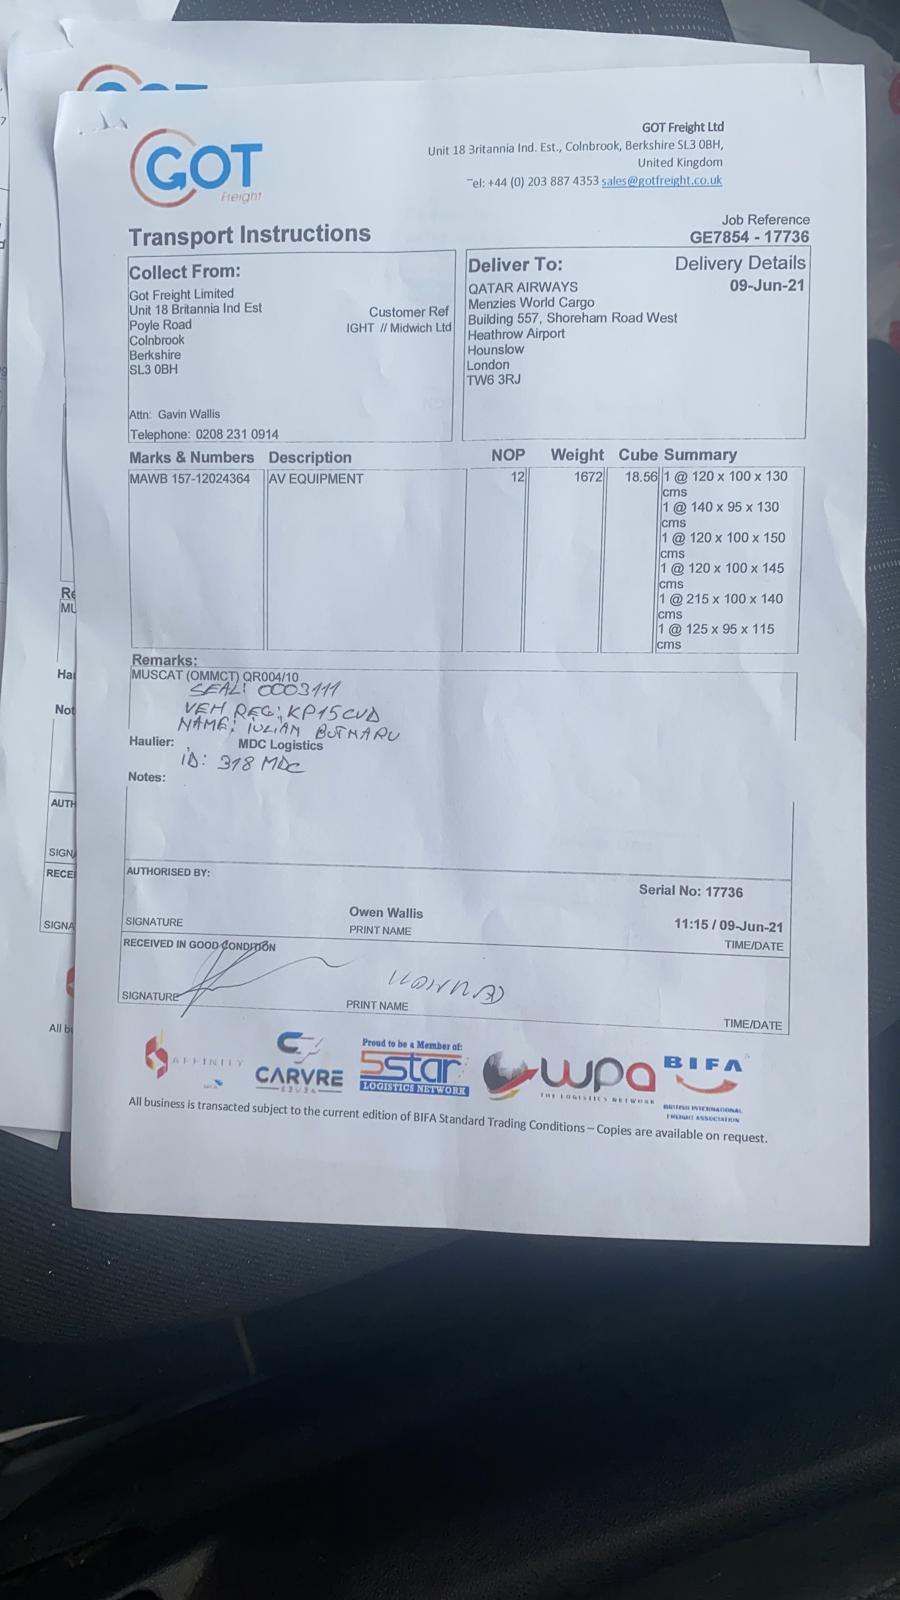 GOT
Freight
GOT Freight Ltd
Unit 18 Britannia Ind. Est., Colnbrook, Berkshire SL3 0BH,
United Kingdom
Tel: +44 (0) 203 887 4353 sales@gotfreight.co.uk
Transport Instructions
Job Reference
GE7854 - 17736
Collect From:
Got Freight Limited
Unit 18 Britannia Ind Est
Poyle Road
Colnbrook
Berkshire
SL3 0BH
Customer Ref
IGHT // Midwich Ltd
Attn: Gavin Wallis
Telephone: 0208 231 0914
Deliver To:
Delivery Details
QATAR AIRWAYS
09-Jun-21
Menzies World Cargo
Building 557, Shoreham Road West
Heathrow Airport
Hounslow
London
TW6 3RJ
Marks & Numbers Description NOP Weight Cube Summary
MAWB 157-12024364 AV EQUIPMENT 12 1672 18.56 1 @ 120 x 100 x 130
cms
1 @ 140 x 95 x 130
cms
1 @ 120 x 100 x 150
cms
1 @ 120 x 100 x 145
cms
1 @ 215 x 100 x 140
cms
1 @ 125 x 95 x 115
cms
Remarks:
MUSCAT (OMMCT) QR004/10
SEAL: 0003111
VEH REG: KP15CUD
NAME: IULIAN BUTNARU
Haulier: MDC Logistics
ID: 318 MDC
Notes:
AUTHORISED BY:
Serial No: 17736
Owen Wallis
11:15 / 09-Jun-21
SIGNATURE PRINT NAME TIME/DATE
RECEIVED IN GOOD CONDITION
SIGNATURE PRINT NAME TIME/DATE
AFFINITY
CARVRE
Proud to be a Member of:
5star
LOGISTICS NETWORK
wpa
THE LOGISTICS NETWORK
BIFA
BRITISH INTERNATIONAL
FREIGHT ASSOCIATION
All business is transacted subject to the current edition of BIFA Standard Trading Conditions – Copies are available on request.